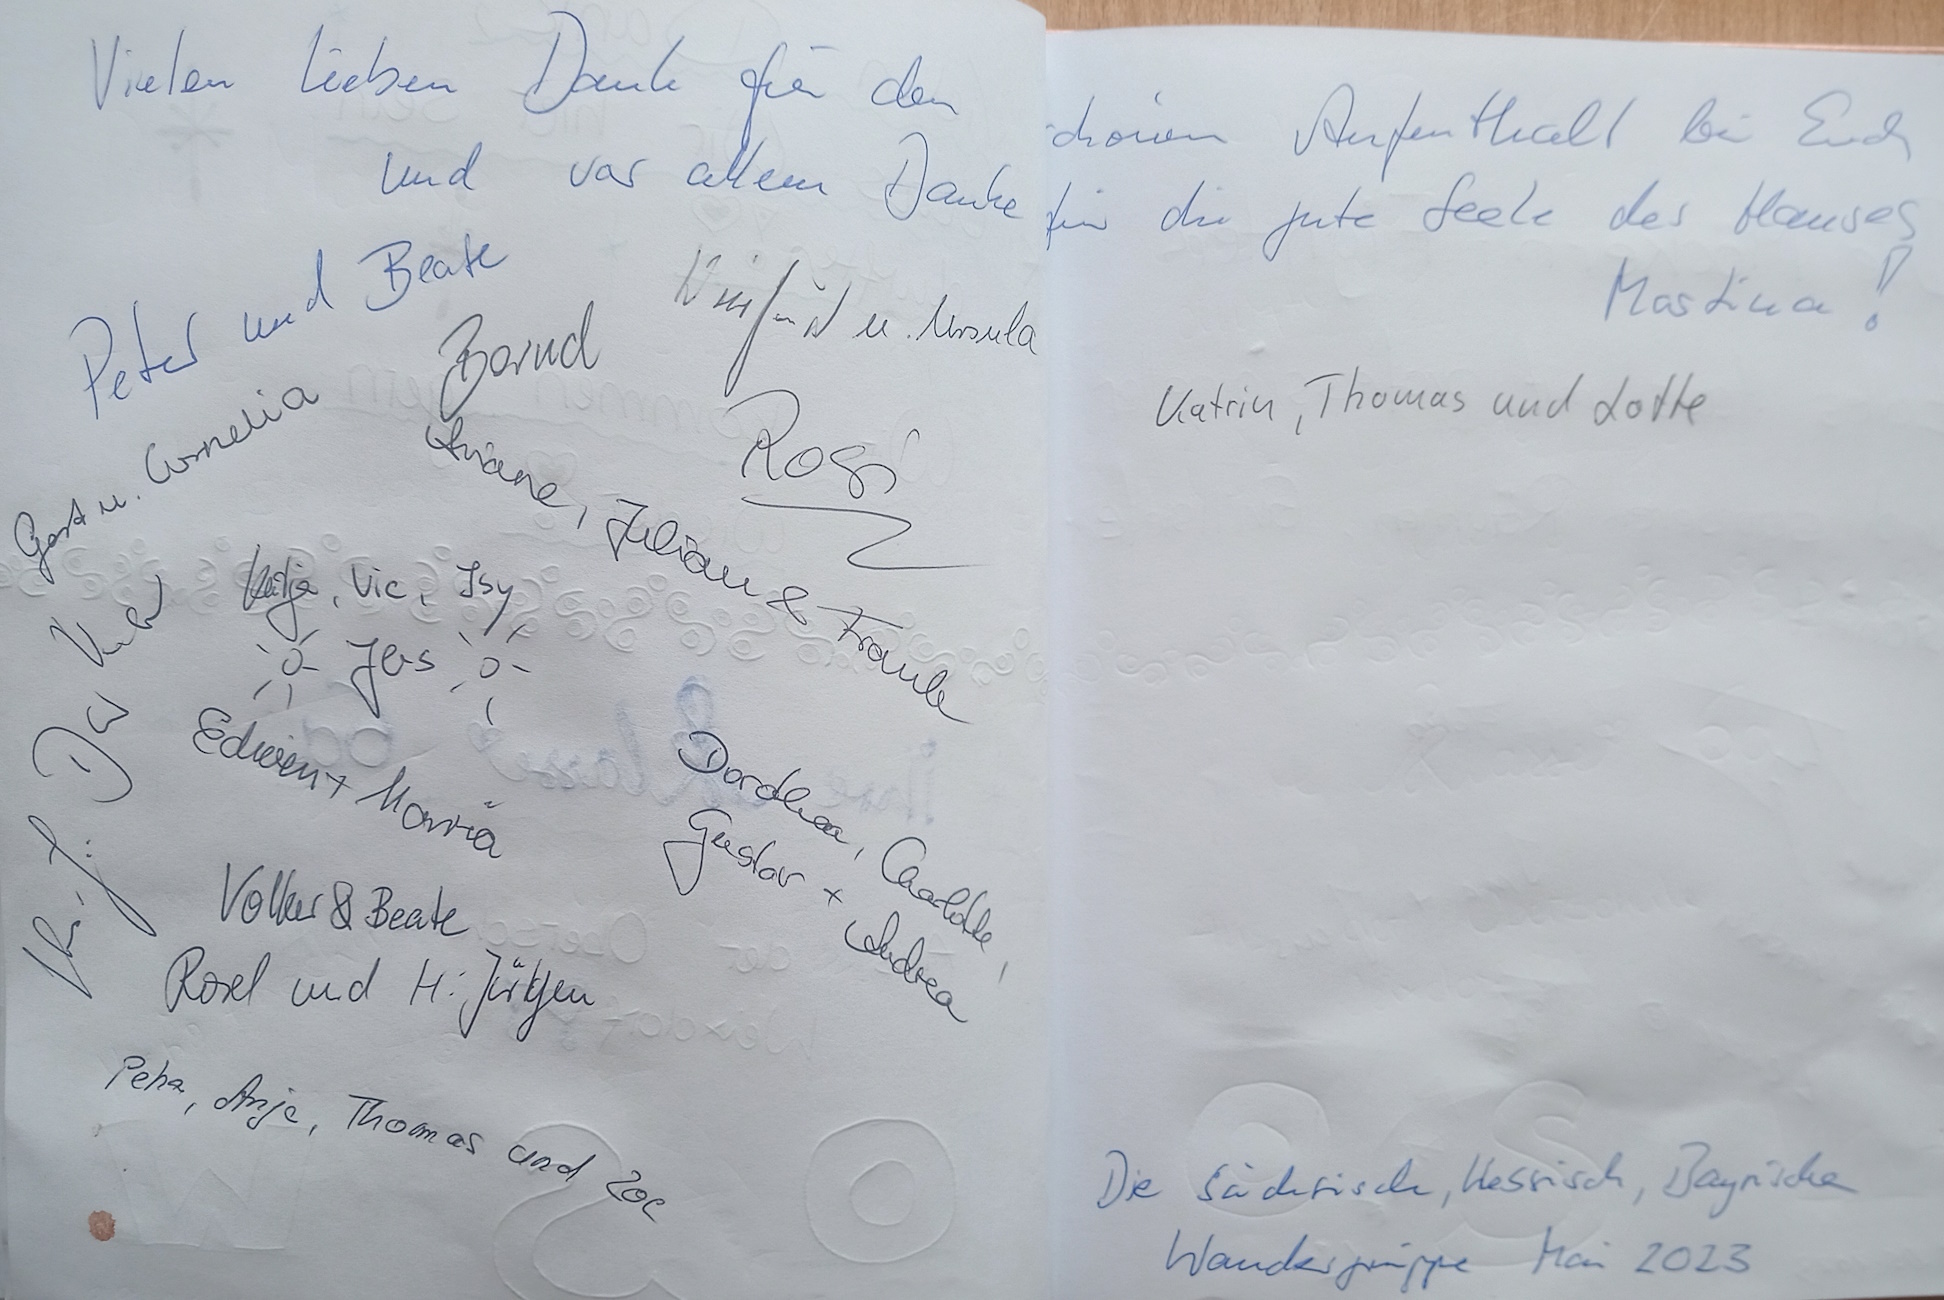 Vielen lieben Dank für den schönen Aufenthalt bei Euch
und vor allem Danke für die gute Seele des Hauses
Martina!
Peter und Beate
Winfried u. Ursula
Bernd
Gert u. Cornelia
Rosi
Ariane, Julian & Frauke
Katrin, Thomas und Lotte
Katja, Vic, Isy
Jens
Edwin + Maria
Dorothea, Charlotte,
Gustav + Andrea
Volker & Beate
Rosel und H. Jürgen
Petra, Anja, Thomas und Zoe
Die Sächsisch, Hessisch, Bayrische
Wandergruppe Mai 2023